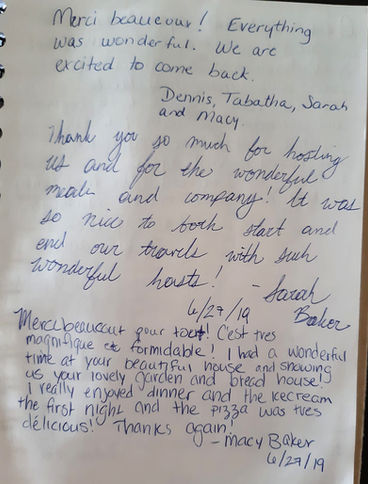 Merci beaucoup! Everything
was wonderful. We are
excited to come back.
Dennis, Tabatha, Sarah
and Macy.
Thank you so much for hosting
us and for the wonderful
meals and company! It was
so nice to both start and
end our travels with such
wonderful hosts! - Sarah
Baker
6/27/19
Merci beaucout pour tout! C'est tres
magnifique et formidable! I had a wonderful
time at your beautiful house and showing
us your lovely garden and bread house!
I really enjoyed dinner and the icecream
the first night and the pizza was tres
délicious! Thanks again!
- Macy Baker
6/27/19